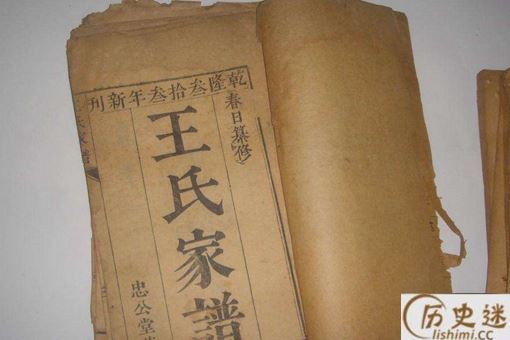 乾隆叁拾叁年新刊
春日纂修
王氏家譜
忠公堂
历史迷
lishimi.cc